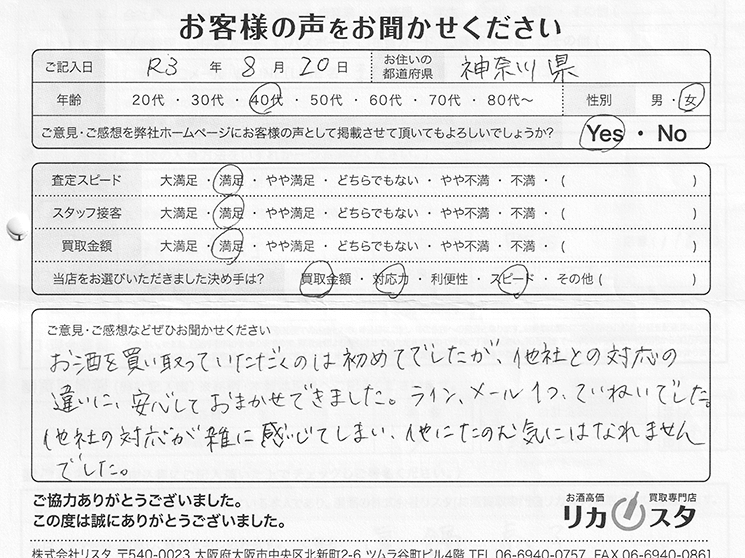 お客様の声をお聞かせください
ご記入日 R3 年 8 月 20 日 お住いの都道府県 神奈川県
年齢 20代 ・ 30代 ・ 40代 ・ 50代 ・ 60代 ・ 70代 ・ 80代〜 性別 男 ・ 女
ご意見・ご感想を弊社ホームページにお客様の声として掲載させて頂いてもよろしいでしょうか? Yes ・ No
査定スピード 大満足 ・ 満足 ・ やや満足 ・ どちらでもない ・ やや不満 ・ 不満 ・ ( )
スタッフ接客 大満足 ・ 満足 ・ やや満足 ・ どちらでもない ・ やや不満 ・ 不満 ・ ( )
買取金額 大満足 ・ 満足 ・ やや満足 ・ どちらでもない ・ やや不満 ・ 不満 ・ ( )
当店をお選びいただきました決め手は? 買取金額 ・ 対応力 ・ 利便性 ・ スピード ・ その他 ( )
ご意見・ご感想などぜひお聞かせください
お酒を買い取っていただくのは初めてでしたが、他社との対応の
違いに、安心しておまかせできました。ライン、メール1つ、ていねいでした。
他社の対応が雑に感じてしまい、他にたのむ気にはなれません
でした。
ご協力ありがとうございました。
この度は誠にありがとうございました。
お酒高価 買取専門店
リカスタ
株式会社リスタ 〒540-0023 大阪府大阪市中央区北新町2-6 ツムラ谷町ビル4階 TEL 06-6940-0757 FAX 06-6940-0861